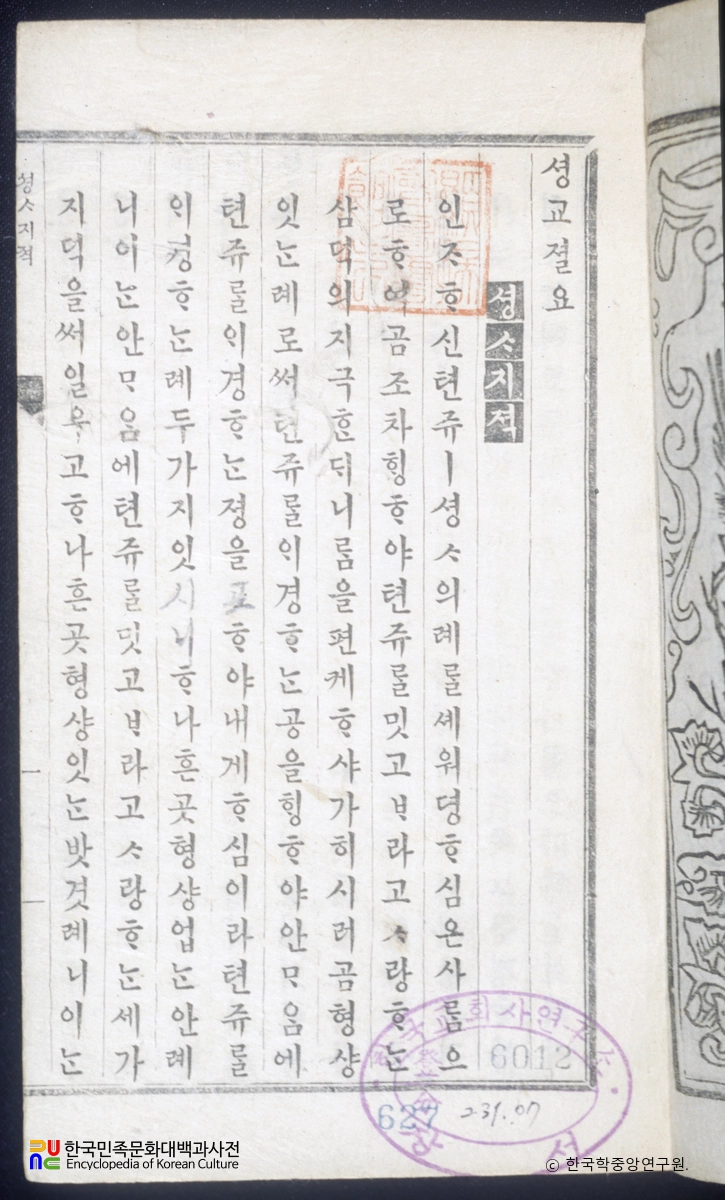 셩교졀요
셩ᄉᆞ지젹
인ᄌᆞᄒᆞ신텬쥬ㅣ셩ᄉᆞ의례ᄅᆞᆯ셰워뎡ᄒᆞ심은사ᄅᆞᆷ으
로ᄒᆞ여곰조차ᄒᆡᆼᄒᆞ야텬쥬ᄅᆞᆯ밋고ᄇᆞ라고ᄉᆞ랑ᄒᆞᄂᆞᆫ
삼덕의지극ᄒᆞᆫᄃᆡ니ᄅᆞᆷ을편케ᄒᆞ샤가히시러곰형샹
잇ᄂᆞᆫ례로써텬쥬ᄅᆞᆯᄋᆡ경ᄒᆞᄂᆞᆫ공을ᄒᆡᆼᄒᆞ야안ᄆᆞᄋᆞᆷ에
텬쥬ᄅᆞᆯᄋᆡ경ᄒᆞᄂᆞᆫ졍을표ᄒᆞ야내게ᄒᆞ심이라텬쥬ᄅᆞᆯ
ᄋᆡ경ᄒᆞᄂᆞᆫ례두가지잇시니ᄒᆞ나흔곳형샹업ᄂᆞᆫ안례
니이ᄂᆞᆫ안ᄆᆞᄋᆞᆷ에텬쥬ᄅᆞᆯ밋고ᄇᆞ라고ᄉᆞ랑ᄒᆞᄂᆞᆫ세가
지덕을써일우고ᄒᆞ나흔곳형샹잇ᄂᆞᆫ밧겻례니이ᄂᆞᆫ
셩ᄉᆞ지젹
一
6012
627
231.07
한국민족문화대백과사전
Encyclopedia of Korean Culture
© 한국학중앙연구원.